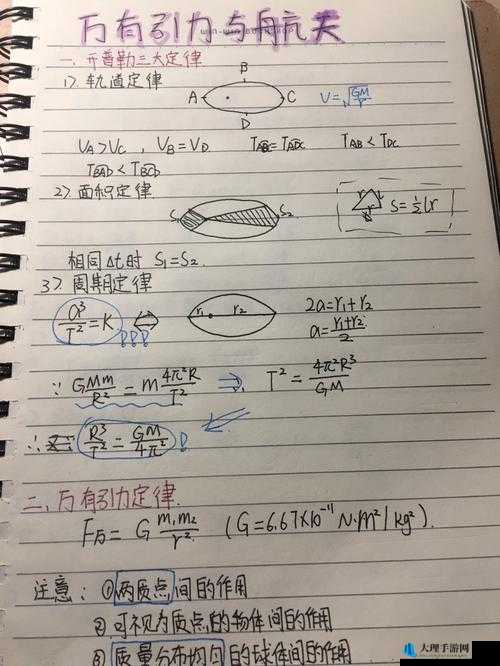 万有引力与航天
一、开普勒三大定律
1>. 轨道定律
B
A
C
D
V=√(GM/r)
VA>VC , VB=VD TAB=TADC TAB<TDC
TBAD<TBCD
2> 面积定律
S1
S2
S=½lr
相同Δt时 S1=S2.
3> 周期定律
a³/T²=K
r1
r2
2a=r1+r2
a=(r1+r2)/2
∵ GMm/R²=m4π²R/T² ⇒ T²=4π²R³/GM
∴ R³/T²=GM/4π²
二、万有引力定律.
F万=G m1m2/r² (G=6.67×10⁻¹¹ N·m²/kg²).
注意: ①两质点间的作用
②可视为质点的物体间的作用
③质量分布均匀的球体间的作用
大理手游网